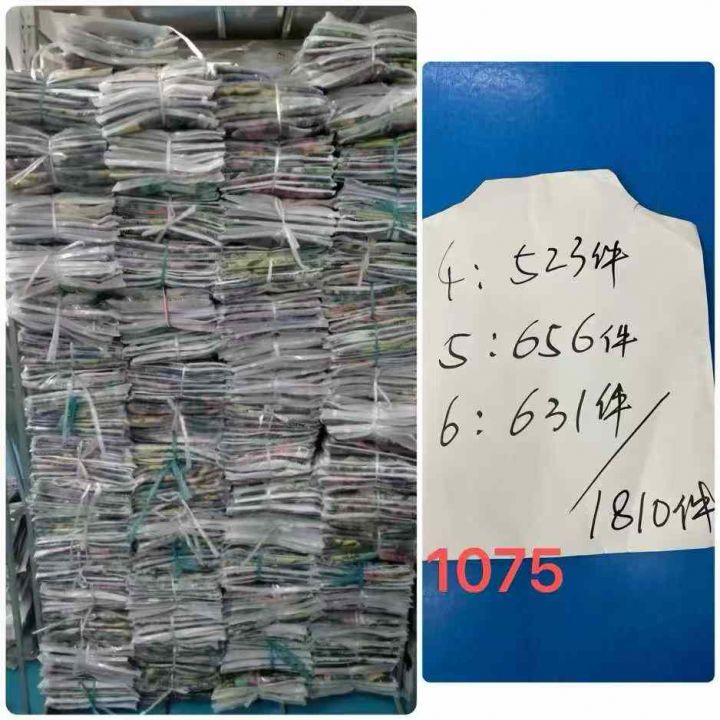 4：523件
5：656件
6：631件
1810件
1075